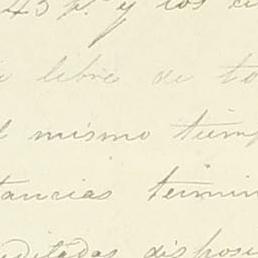 43 p.º y los
libre de to
mismo tiemp
tancias termin
ditadas disposi